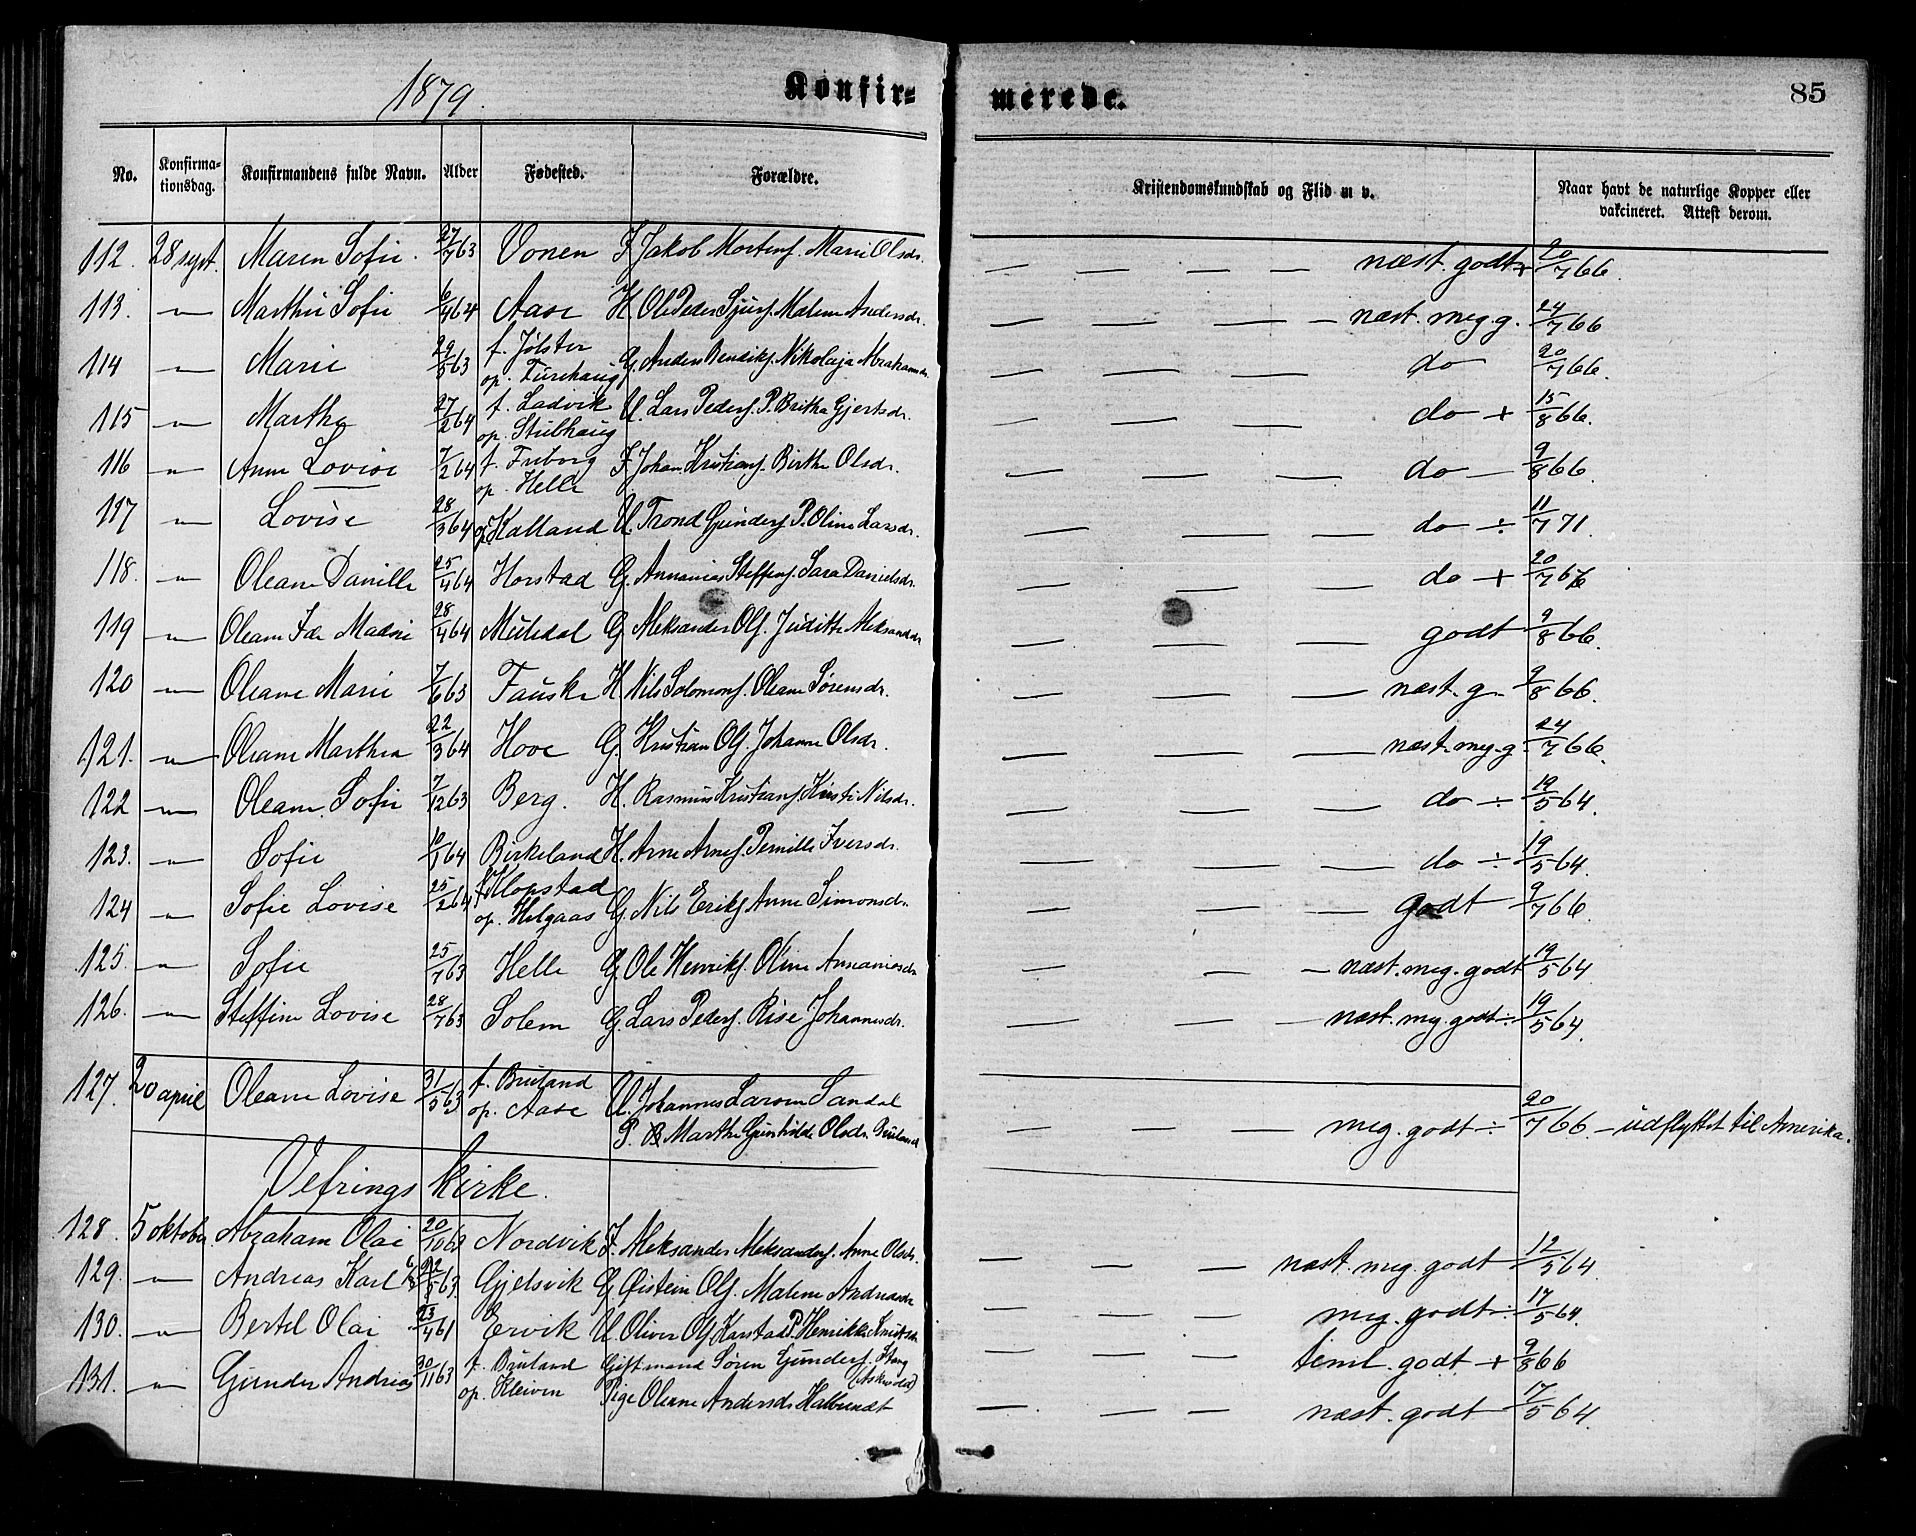 1879. Konfir= merede. 85
No. Konfirma=tionsdag. Konfirmandens fulde Navn. Alder Fødested. Forældre. Kristendomskundskab og Flid m v. Naar havt de naturlige Kopper eller vakcineret. Attest derom.
112. 28 sept. Maren Sofie 27/7 63 Vonen F Jakob Mortens. Marie Olsdr. — — — — næst. godt + 20/7 66.
113. — Marthe Sofie 6/4 64 Aase H. Ole Peder Sjurs. Malene Andersdr. — — — — næst. meg g. 24/7 66
114 — Marie 29/5 63 f. Jølster
op. Furehaug G. Anders Bendiks. Nikolaja Abrahamdr. — — — do 20/7 66.
115 — Martha 27/2 64 f. Ladvik
op. Stubhaug U. Lars Peders. P. Britha Gjertsdr. — — — do + 15/8 66.
116 — Anne Lovise 7/2 64 f. Friborg
op. Helle F Johan Kristians. Birthe Olsdr. — — — do — 9/8 66.
117 — Lovise 28/3 64 op. Kalland U. Trond Gunders. P. Oline Larsdr. — — — do ÷ 11/7 71.
118. — Oleane Danille 25/4 64 Horstad G. Annanias Steffens. Sara Danielsdr. — — — do + 20/7 66
119 — Oleane Ida Madsi 28/4 64 Muledal G. Aleksander Ols. Judithe Aleksanddr — — — godt 9/8 66.
120 — Oleane Marie 7/6 63 Fauske H. Nils Solomons. Oleane Sørensdr. — — — næst. g. 9/8 66.
121. — Oleane Marthea 22/3 64 Hove G. Kristian Ols. Johanne Olsdr. — — — næst. meg. g. 24/7 66.
122 — Oleane Sofie 7/12 63 Berg. H. Rasmus Kristians. Kirsti Nilsdr. — — — do ÷ 19/5 64.
123. — Sofie 10/1 64 Birkeland H. Arne Arnes. Pernille Iversdr. — — — do ÷ 19/5 64.
124 — Sofie Lovise 25/2 64 f. Klopstad
op. Helgaas G. Nils Eriks. Anne Simonsdr. — — — godt 9/7 66.
125. — Sofie 25/7 63 Helle G Ole Henriks. Oline Annaniasdr. — — — næst. meg. godt 19/5 64
126. — Steffine Lovise 28/7 63 Solem G. Lars Peders. Rise Johannesdr. — — — næst. meg. godt ÷ 19/5 64.
127. 20 april Oleane Lovise 31/5 63 f. Bruland
op. Aase U. Johannes Larsen Sandal
P. Marthe Gunhilde Olsdr. Bruland — — — meg. godt ÷ 20/7 66. — udflyttet til Amerika.
Vefrings Kirke.
128. 5 oktober. Abraham Olai 20/10 62 Nordvik F. Aleksander Aleksanders. Anne Olsdr. — — — næst. meg. godt 12/5 64.
129. — Andreas Karl 22/5 63 Gjelsvik G. Øistein Ols. Malene Andreasdr — — — meg. godt ÷ 17/5 64.
130. — Bertel Olai 23/4 61 Ervik U Oliver Ols. Karstad P. Henrikke Knutsdr. — — — teml. godt + 9/8 66
131. — Gunder Andreas 30/11 63 f. Bruland
op. Kleiven Giftmand Søren Gunders. Stang (Askvold)
Pige Oleane Andersdr. Halbrendt — — — næst. godt 17/5 64.